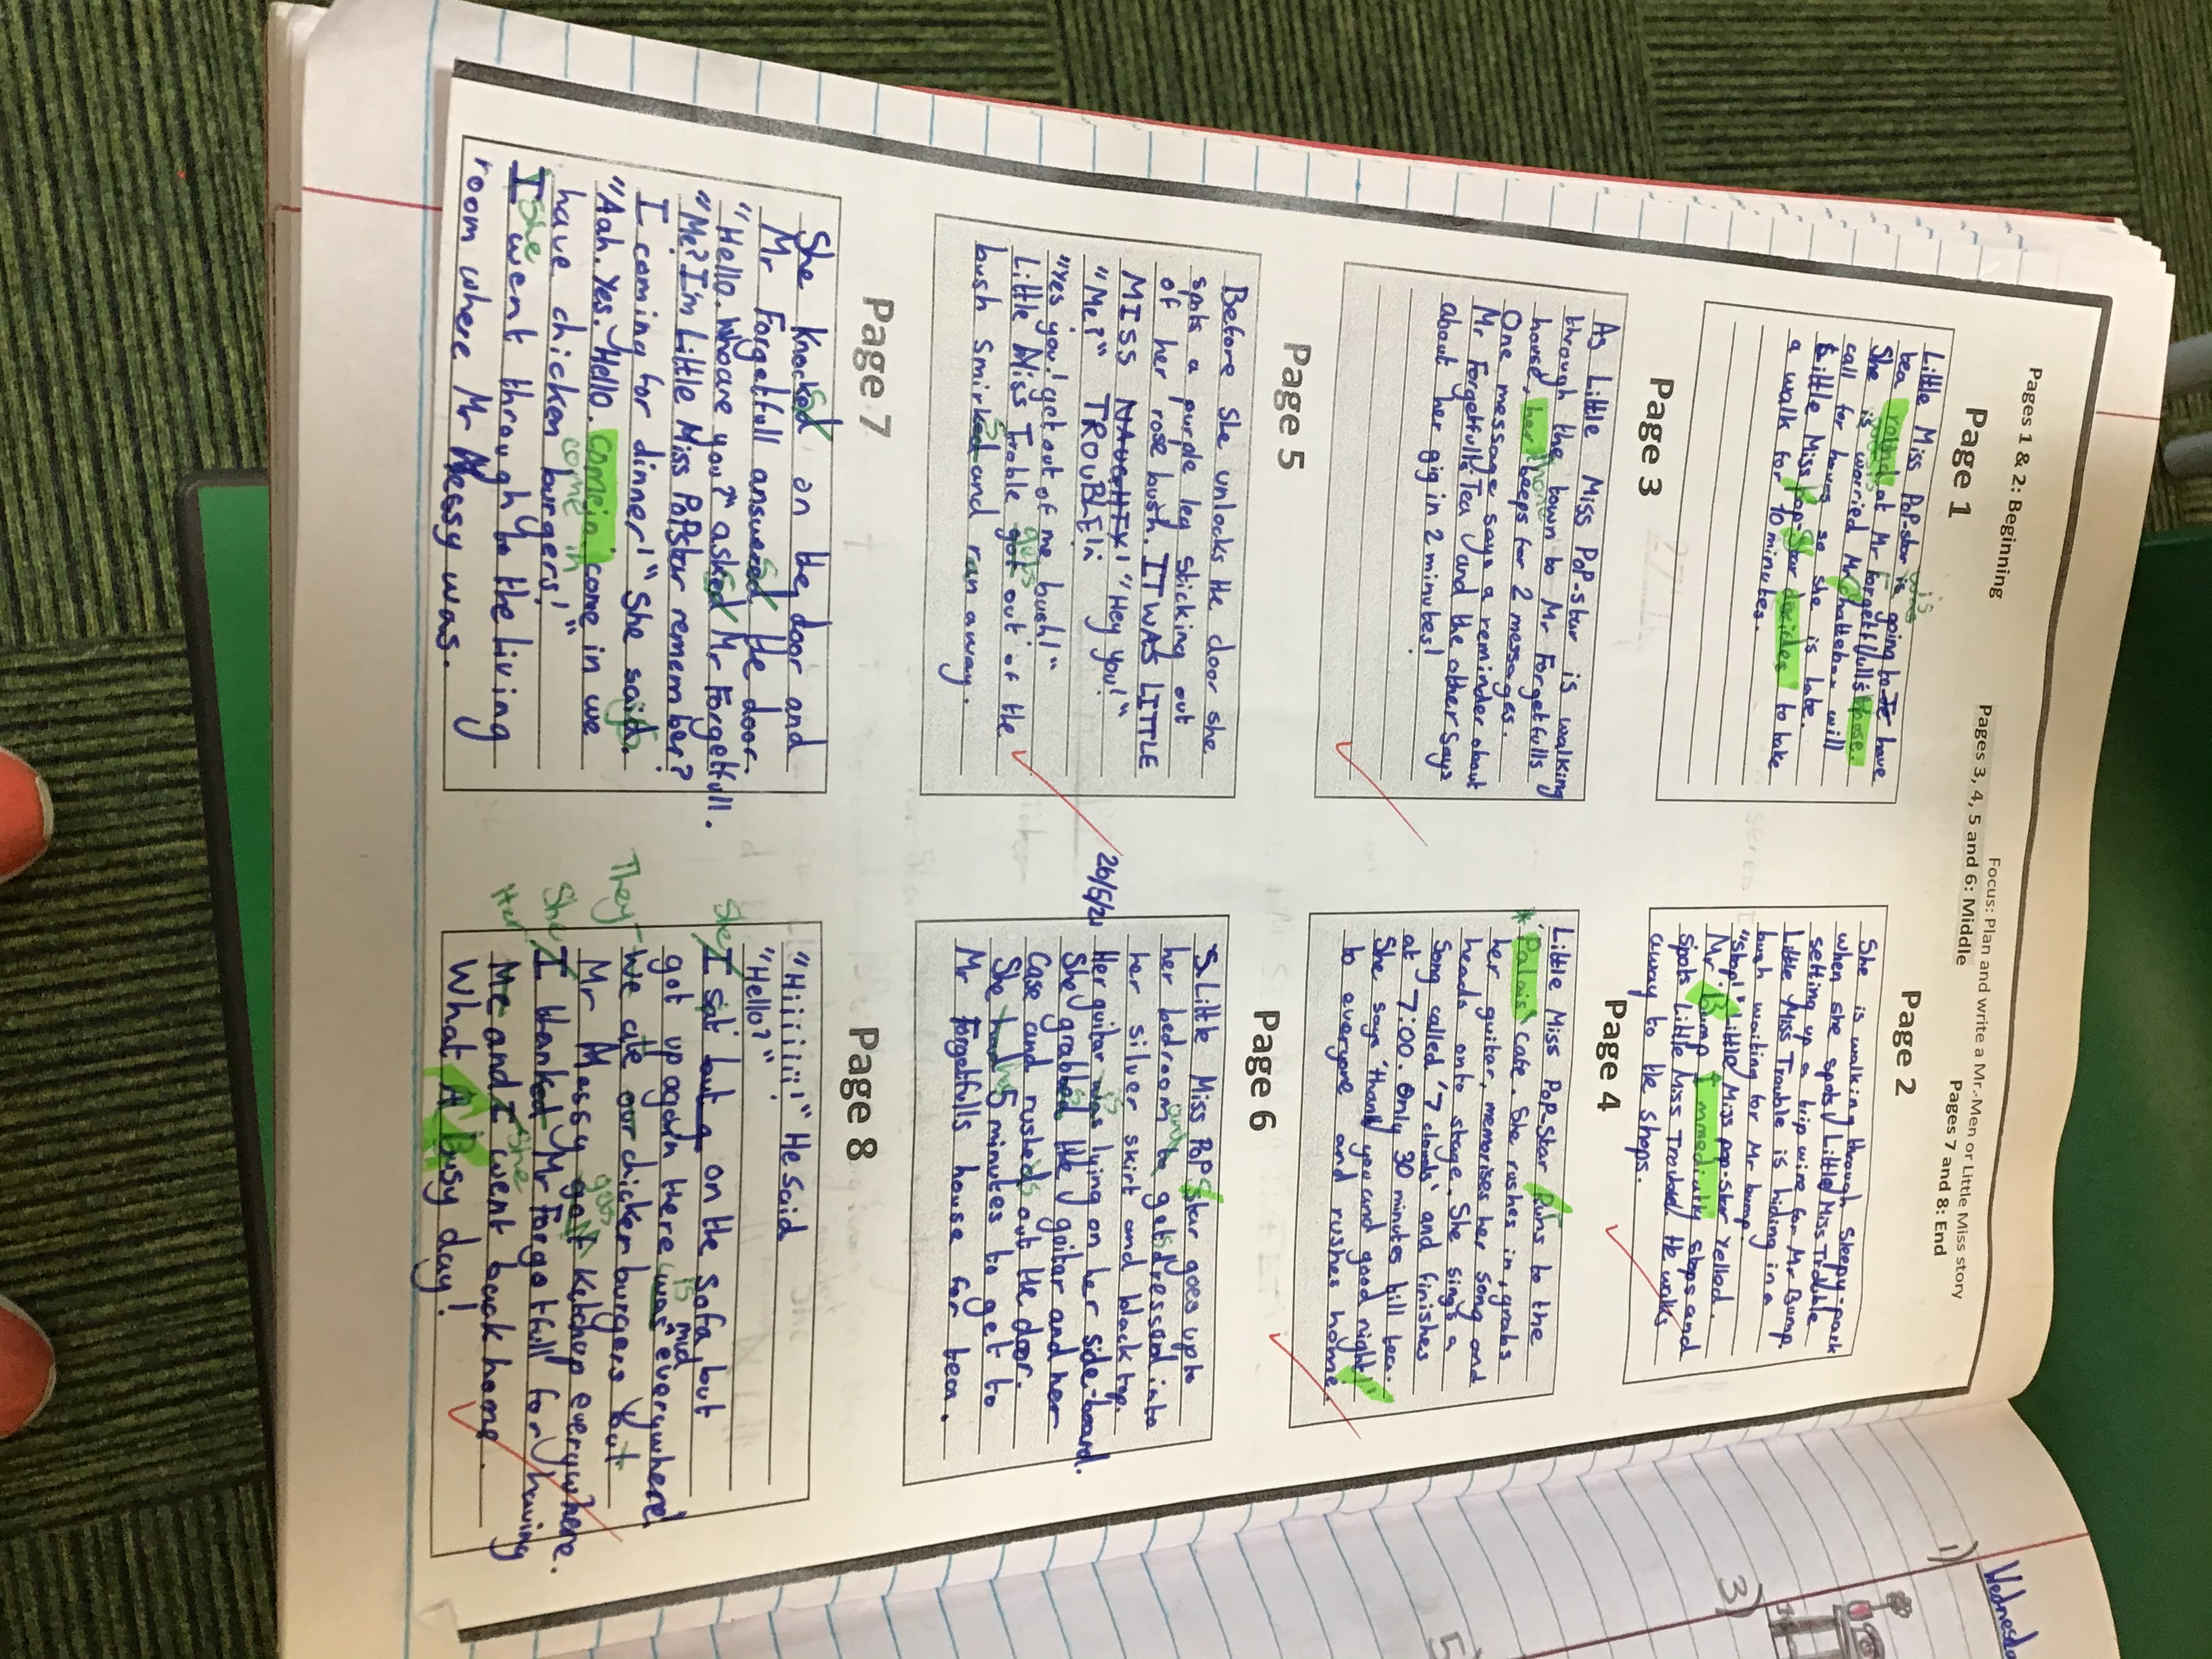 Focus: Plan and write a Mr.-Men or Little Miss story
Pages 1 & 2: Beginning
Pages 3, 4, 5 and 6: Middle
Pages 7 and 8: End
Page 1
Little Miss Pop-star is going to have
tea round at Mr forgetfull's
She is worried Mr Chatterbox will
call for hours so she is late.
Little Miss Pop-Star decides to take
a walk for 10 minutes.
Page 2
She is walking through Sleepy-park
when she spots Little Miss Trouble
setting up a trip wire for Mr Bump
Little Miss Trouble is hiding in a
bush waiting for Mr bump
"stop!" Little Miss pop-star Yelled.
Mr Bump immediatly stops and
spots Little Miss Trouble! He walks
away to the shops.
Page 3
As Little Miss PoP-star is walking
through the town to Mr Forgetfulls
house, her phone beeps for 2 messages.
One message says a reminder about
Mr Forgetfulls Tea and the other Says
about her gig in 2 minutes!
Page 4
Little Miss PoP-Star Runs to the
* Palais cafe. She rushes in, grabs
her guitar, memorises her song and
heads onto stage. She sings a
Song called '7 clouds' and finishes
at 7:00. Only 30 minutes till tea.
She says 'thank you and good night!'
to everyone and rushes home
Page 5
Before She unlocks the door she
spots a purple leg sticking out
of her rose bush. IT WAS LITTLE
MISS NAUGHTY! "Hey you!"
"Me?" TROUBLE!
"Yes you! get out of me bush!"
Little Miss Trouble got gets out of the
bush smirked s and ran away.
Page 6
Little Miss PoPStar goes up to
her bedroom and gets dressed into
her silver skirt and black top.
26/5/21
Her guitar was is lying on her side-board.
She grabbed s the guitar and her
Case and rushed s out the door.
She had has 5 minutes to get to
Mr Forgetfulls house for tea.
Page 7
She knocked s on the door and
Mr Forgetfull answered s the door.
"Hello. Who are you?" asked s Mr Forgetfull.
"Me? I'm Little Miss PoPstar remember?
I coming for dinner!" She said.
"Aah. Yes. Hello. Come in come in we
come in
have chicken burgers!"
I She went through to the living
room where Mr Messy was.
Page 8
"Hiiiiiii!" He said
"Hello?"
She I sat but a on the Sofa, but
got up again there was is mud everywhere!
They We ate our chicken burgers but
Mr Messy got gets Ketchup everywhere.
She I thanked Mr Forgetfull for having
Her Me and I She went back home.
What A Busy day!
Wednesda
1)
3)
5)